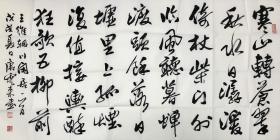 寒山轉蒼翠
秋水日潺湲
倚杖柴門外
臨風聽暮蟬
渡頭餘落日
墟里上孤煙
復值接輿醉
狂歌五柳前
王維輞川閑居一首
戊戌夏日